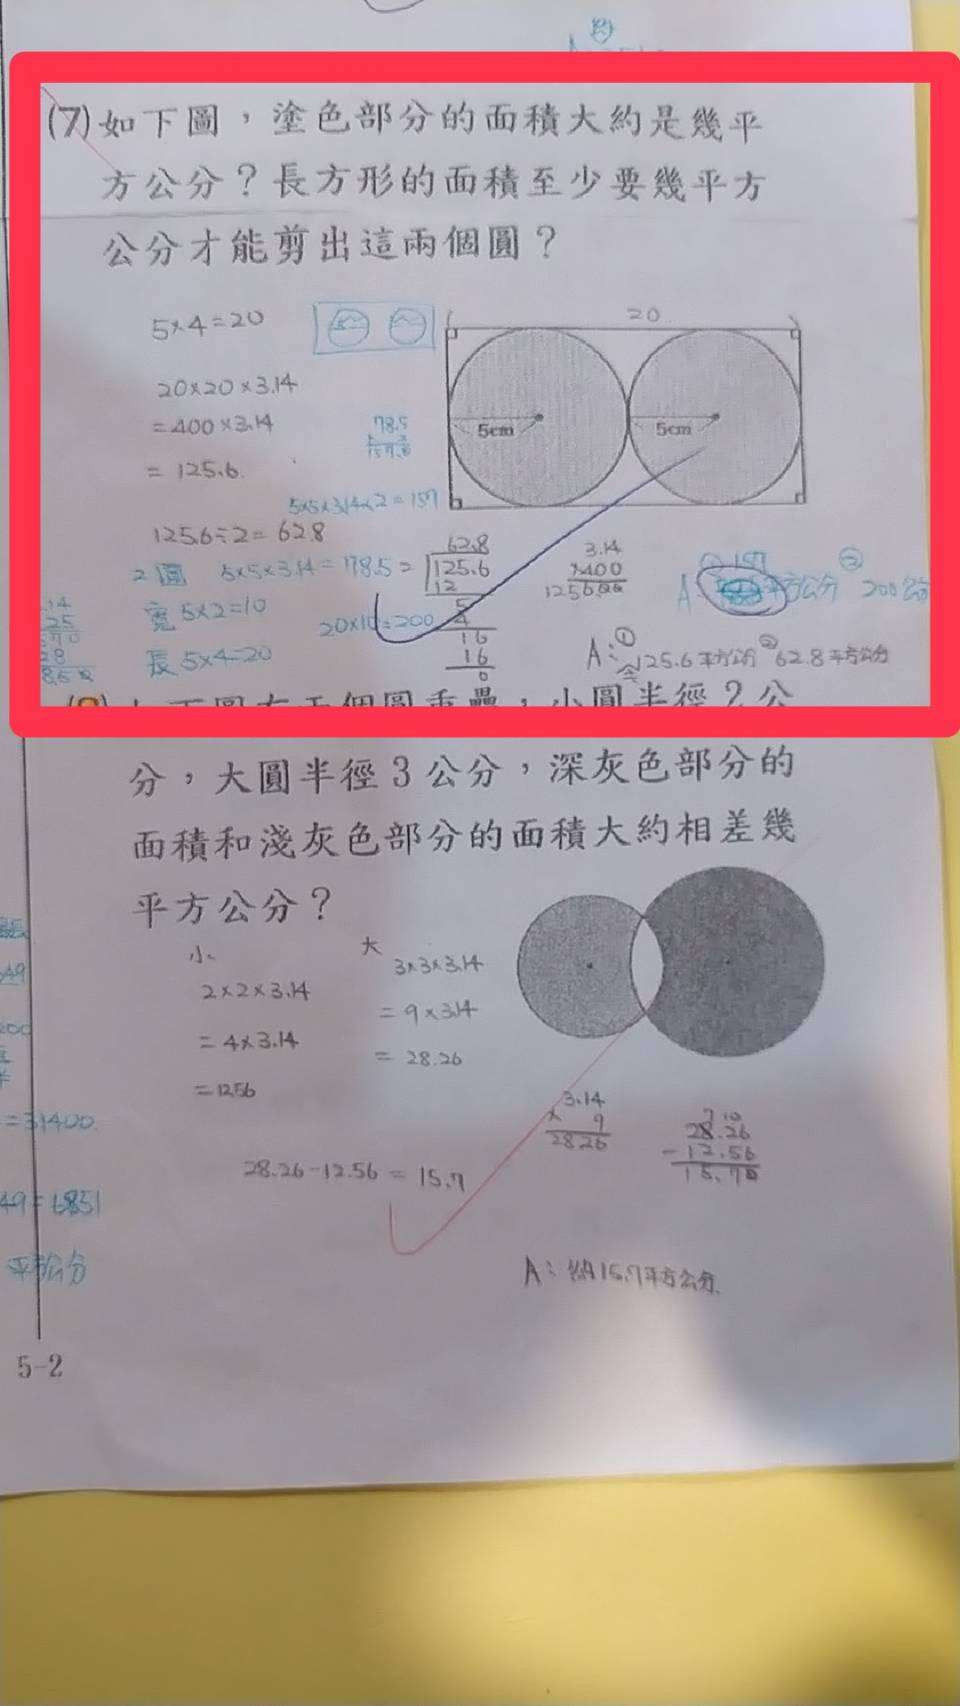 (7)如下圖，塗色部分的面積大約是幾平
方公分？長方形的面積至少要幾平方
公分才能剪出這兩個圓？
5×4=20
20×20×3.14
=400×3.14
=125.6
125.6÷2=62.8
20
5cm
5cm
78.5
5×5×3.14×2=157
2圓 5×5×3.14=
寬 5×2=10
長 5×4=20
20×10=200
62.8
125.6
12
5
4
16
16
0
3.14
×400
1256.00
A: 157 平方公分 ② 200
A: ① 125.6平方公分 ② 62.8平方公分
小圓半徑2公
分，大圓半徑3公分，深灰色部分的
面積和淺灰色部分的面積大約相差幾
平方公分？
小
2×2×3.14
=4×3.14
=12.56
大
3×3×3.14
=9×3.14
=28.26
3.14
× 9
28.26
7 10
28.26
-12.56
15.70
28.26-12.56=15.7
A: 約15.7平方公分
=31400.
49=6851
平方公分
5-2